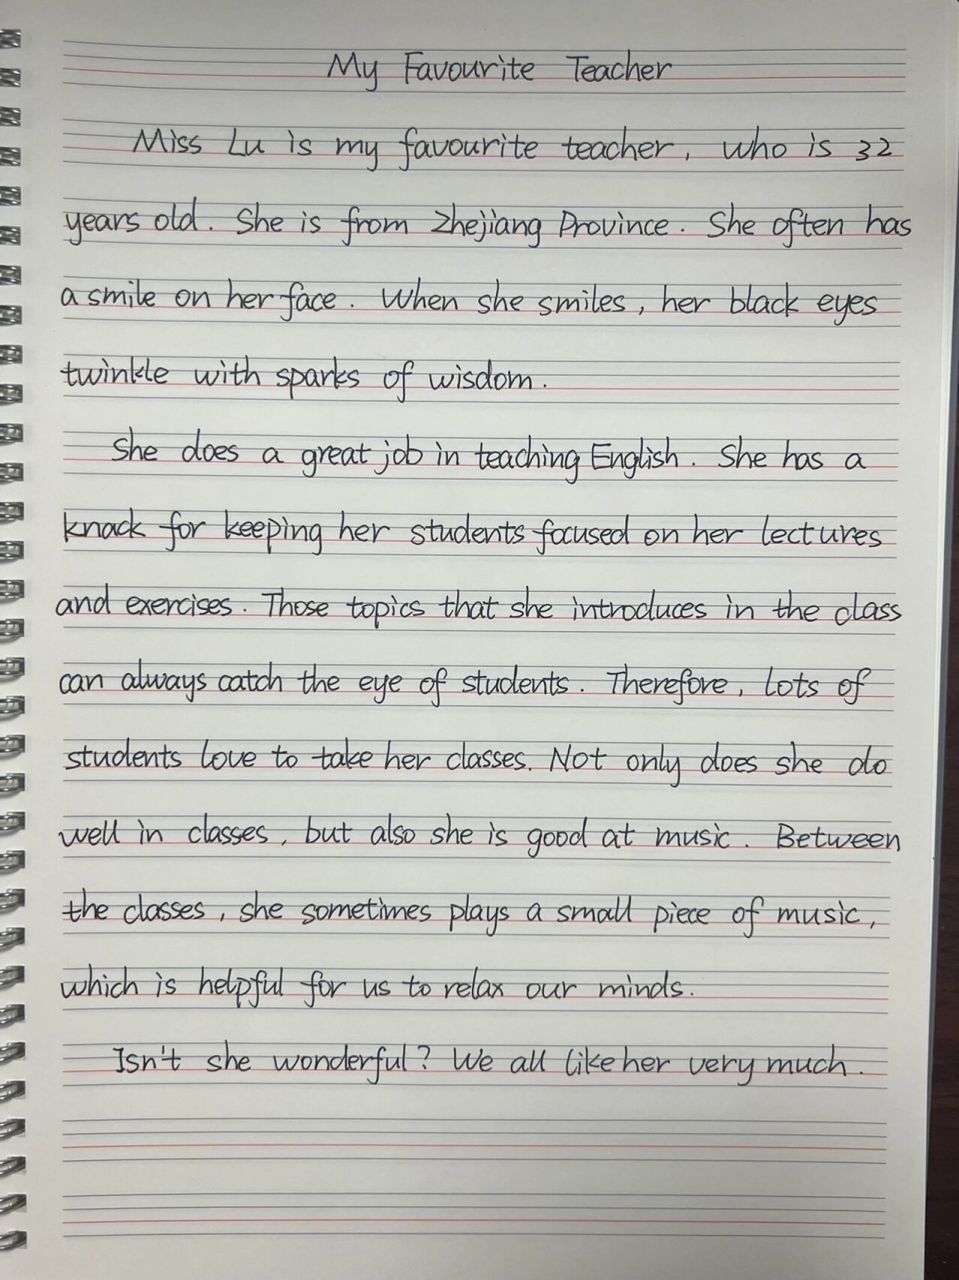 My Favourite Teacher
Miss Lu is my favourite teacher, who is 32
years old. She is from Zhejiang Province. She often has
a smile on her face. When she smiles, her black eyes
twinkle with sparks of wisdom.
She does a great job in teaching English. She has a
knack for keeping her students focused on her lectures
and exercises. Those topics that she introduces in the class
can always catch the eye of students. Therefore, lots of
students love to take her classes. Not only does she do
well in classes, but also she is good at music. Between
the classes, she sometimes plays a small piece of music,
which is helpful for us to relax our minds.
Isn't she wonderful? We all like her very much.